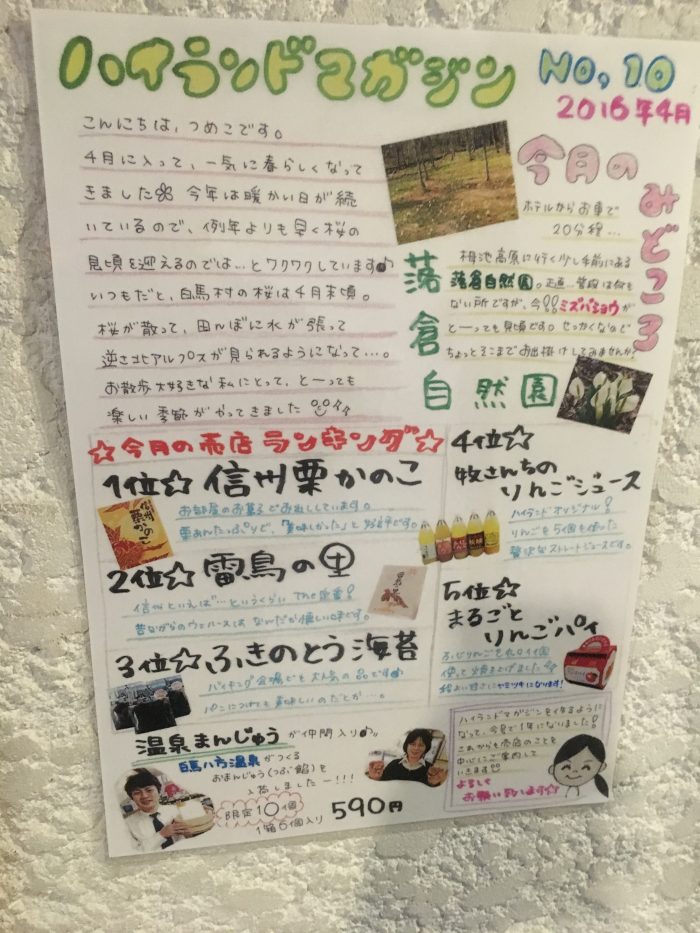 ハイランドマガジン No,10
2016年4月
こんにちは、つめこです。
4月に入って、一気に春らしくなって
きました 今年は暖かい日が続
いているので、例年よりも早く桜の
見頃を迎えるのでは…とワクワクしています♪
いつもだと、白馬村の桜は4月末頃。
桜が散って、田んぼに水が張って
逆さ北アルプスが見られるようになって…。
お散歩大好きな私にとって、とーっても
楽しい季節がやってきました
今月のみどころ
ホテルからお車で
20分程…
落倉自然園
栂池高原に行く少し手前にある
落倉自然園。正直…普段は何も
ない所ですが、今!!ミズバショウが
とーっても見頃です。せっかくなので
ちょっとそこまでお出掛けしてみませんか?
☆今月の売店ランキング☆
1位☆信州栗かのこ
お部屋のお菓子でお出ししています。
栗あんたっぷりで、「美味しかった」と好評です。
信州
栗かのこ
2位☆雷鳥の里
信州といえば…というくらいThe定番!
昔ながらのウエハースはなんだか懐しい味です。
3位☆ふきのとう海苔
バイキング会場でも大人気の品です♪
パンにつけても美味しいのだとか…。
4位☆
牧さんちの
りんごジュース
ハイランドオリジナル!
りんごを5個も使った
贅沢なストレートジュースです。
5位☆
まるごと
りんごパイ
ふじりんごを丸ごと1個
使って焼き上げました
程よい甘さにヤミツキになります!
温泉まんじゅうが仲間入り♪
白馬八方温泉がつくる
おまんじゅう(つぶ餡)を
入荷しましたー!!!
限定10個
1箱6個入り
590円
ハイランドマガジンを作るように
なって、今号で1年になりました!
これからも売店のことを
中心にご案内して
いきます
よろしく
お願い致します☆